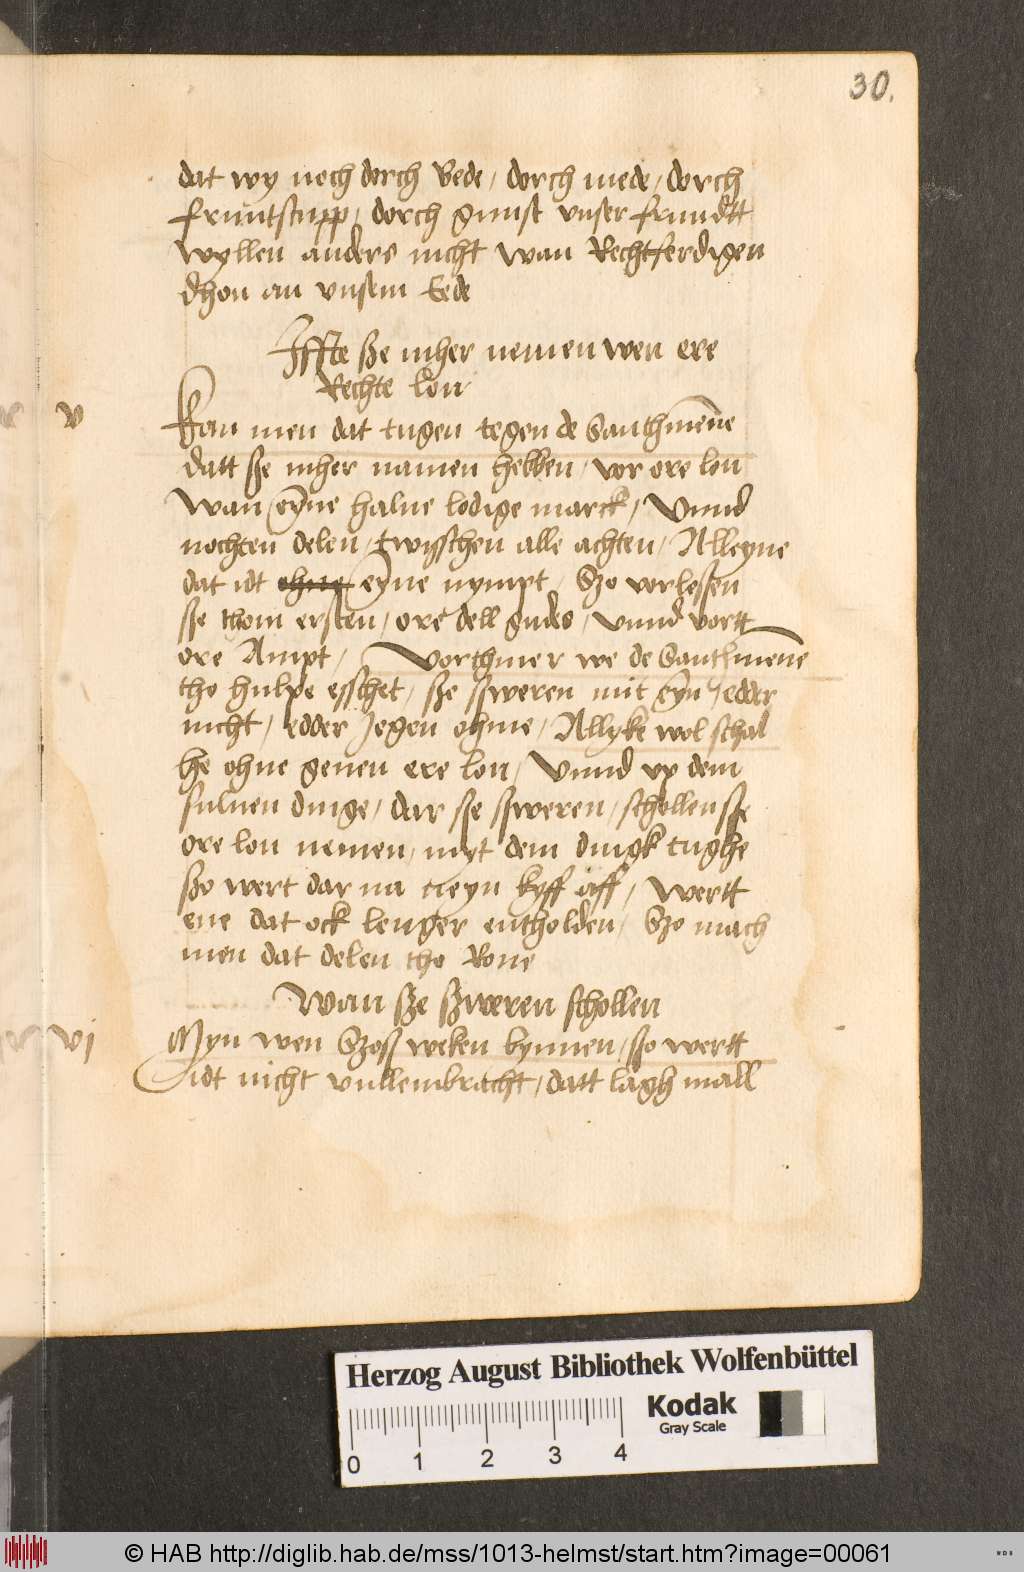 30.
dat wy noch dorch Bede, dorch mede, dorch
fruntscupp, dorch gunst vnser frundtt
wyllen anders nicht wan Rechtferdigen
dhon an vnsem Eede
Iffte sze mher nemen wen ere
Rechte lon
v
Kan men dat tugen tegen de Santhmēne
datt sse mher namen hebben, vor ore lon
wan eyne halue lodige marck, Vnnd
nochten delen, twysschen alle achten, Alleyne
dat idt ohne eyne nympt, Szo vorlesen
sse thom ersten, ore dell gudes, vnnd vortt
ore Ampt, Vorthmer we de Santhmēne
tho hulpe esschet, sze ssweren mit eyn, edder
nicht, edder Jegen ohme, Allyke wol schal
he ohne geuen ere lon, Vnnd vp dem
suluen dinge, dar sse ssweren, schollen sse
ore lon nemen, myt dem dingk tughe
szo wert dar na neyn kyff aff, wertt
ene dat ock lenger entholden, Szo mach
men dat delen tho Roue
Wan sze szweren schollen
vi
Myn wen Szoss weken bynnen, sso wertt
idt nicht vullenbracht, datt lagh mall
Herzog August Bibliothek Wolfenbüttel
Kodak
Gray Scale
0 1 2 3 4
© HAB http://diglib.hab.de/mss/1013-helmst/start.htm?image=00061